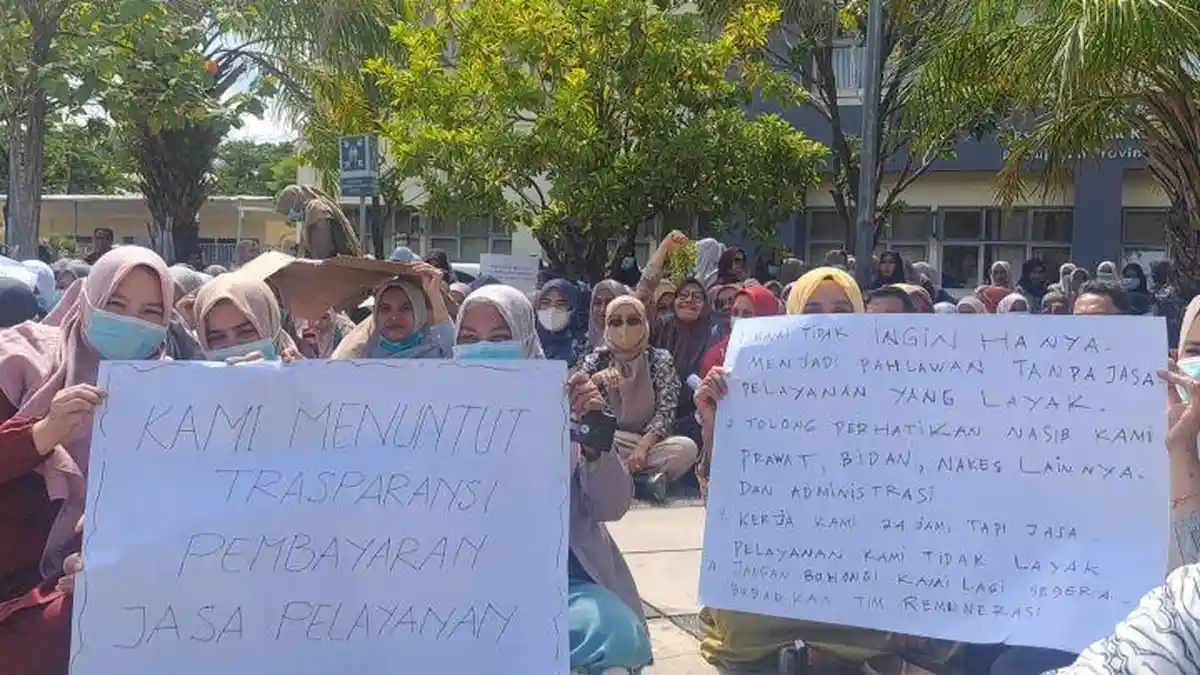 KAMI MENUNTUT
TRASPARANSI
PEMBAYARAN
JASA PELAYANAN
1 KAMI TIDAK INGIN HANYA.
MENJADI PAHLAWAN TANPA JASA
PELAYANAN YANG LAYAK.
2 TOLONG PERHATIKAN NASIB KAMI
PRAWAT, BIDAN, NAKES LAINNYA.
DAN ADMINISTRASI
KERJA KAMI 24 JAM, TAPI JASA
PELAYANAN KAMI TIDAK LAYAK
JANGAN BOHONGI KAMI LAGI SEGERA
BUBARKAN TIM REMUNERASI